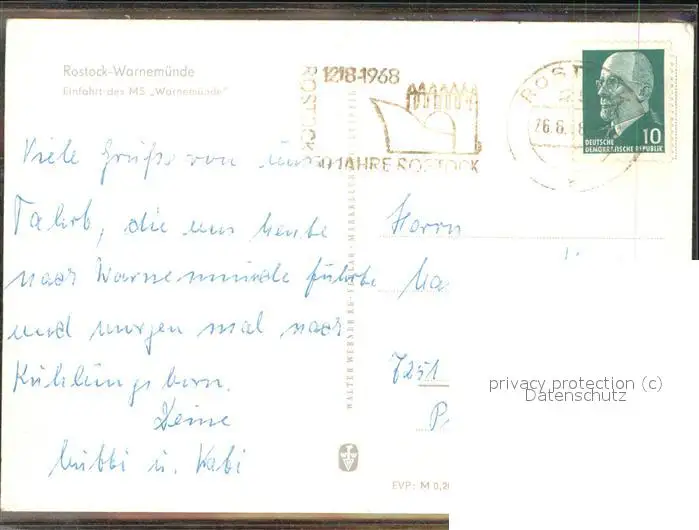 Rostock-Warnemünde
Einfahrt des MS „Warnemünde"
ROSTOCK
1218-1968
JAHRE ROSTOCK
ROST
26.6.
DEUTSCHE
DEMOKRATISCHE REPUBLIK
10
Viele Grüße von
Fahrt, die uns heute
nach Warnemünde führte
und morgen mal nach
Kühlungsborn.
Deine
Mutti u. Gabi
WALTER WERNER KG-VERLAG
Herrn
7251
EVP: M 0,20
privacy protection (c)
Datenschutz